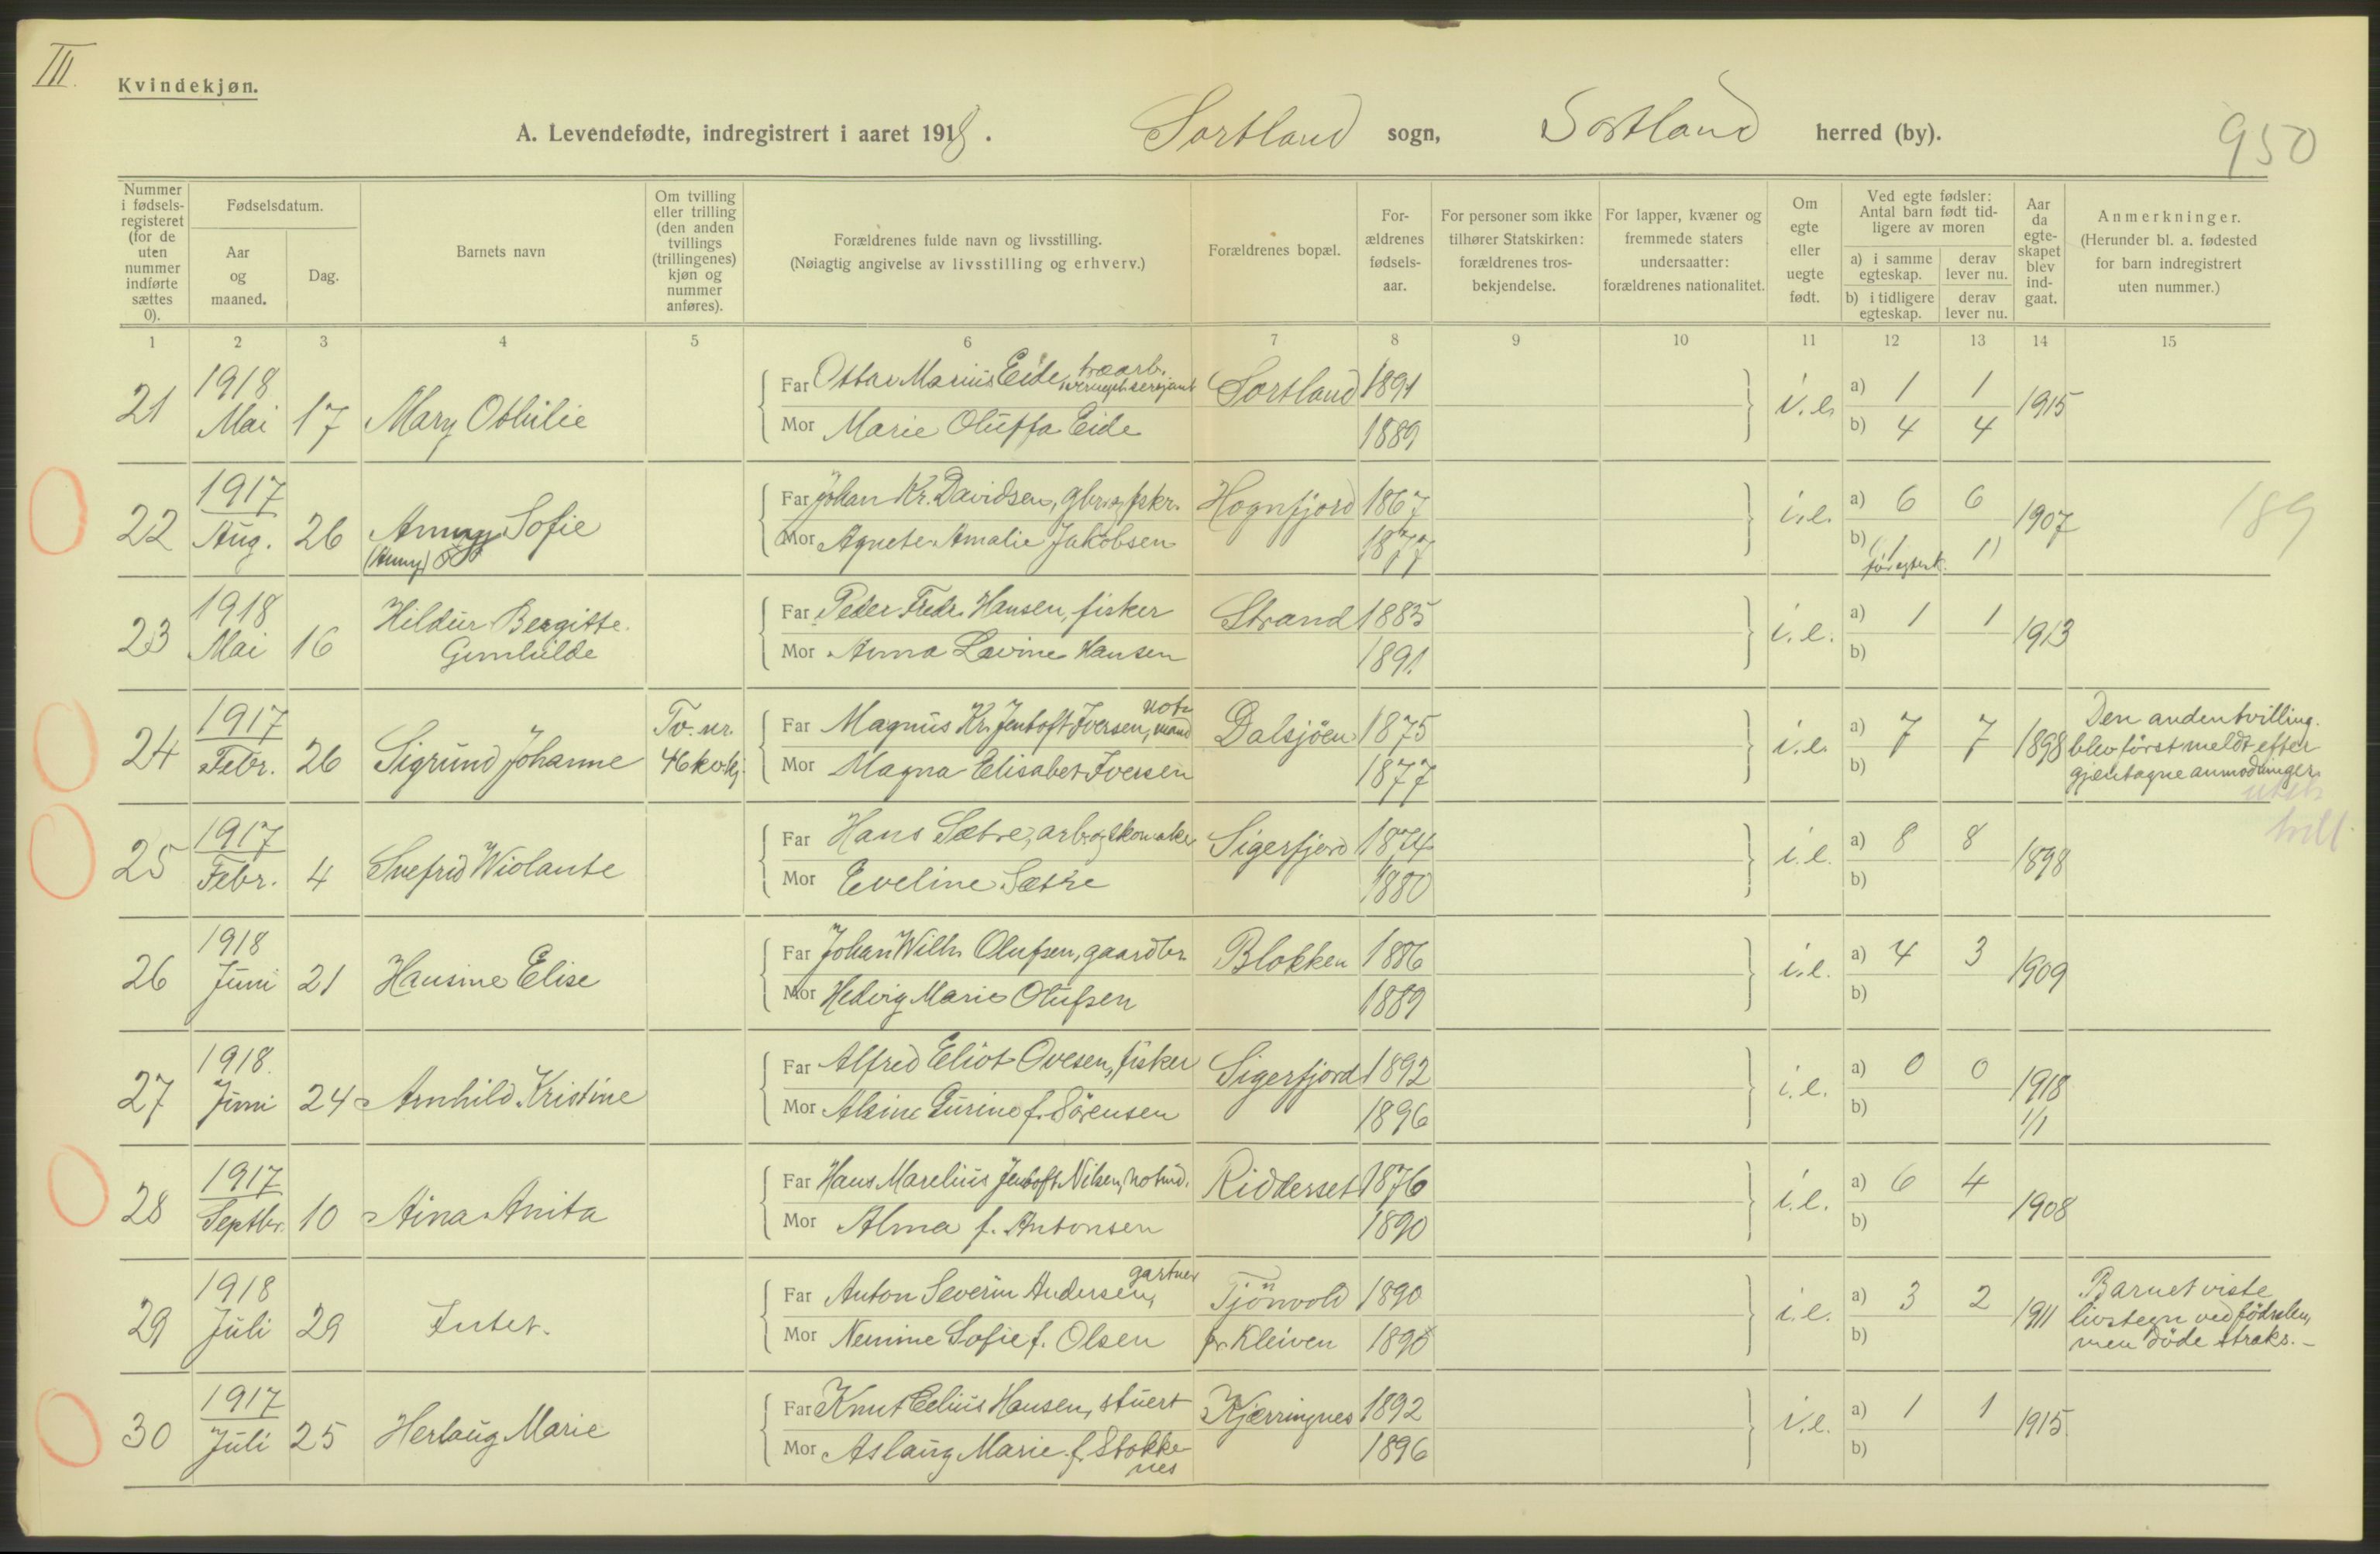 III.
Kvindekjøn.
A. Levendefødte, indregistrert i aaret 1918. Sortland sogn, Sortland herred (by).
950
Nummer i fødsels-registeret (for de uten nummer indførte sættes 0).
Fødselsdatum.
Aar og maaned.
Dag.
Barnets navn
Om tvilling eller trilling (den anden tvillings (trillingenes) kjøn og nummer anføres).
Forældrenes fulde navn og livsstilling.
(Nøiagtig angivelse av livsstilling og erhverv.)
Forældrenes bopæl.
For-ældrenes fødsels-aar.
For personer som ikke tilhører Statskirken: forældrenes tros-bekjendelse.
For lapper, kvæner og fremmede staters undersaatter: forældrenes nationalitet.
Om egte eller uegte født.
Ved egte fødsler: Antal barn født tid-ligere av moren
a) i samme egteskap.
derav lever nu.
b) i tidligere egteskap.
derav lever nu.
Aar da egte-skapet blev ind-gaat.
Anmerkninger.
(Herunder bl. a. fødested for barn indregistrert uten nummer.)
1 2 3 4 5 6 7 8 9 10 11 12 13 14 15
21 1918 Mai 17 Mary Othilie
Far Marius Eide, træarb. Sortland 1891 i.e. a) 1 1 1915
Mor Marie Oluffa Eide 1889 b) 4 4
22 1917 Aug. 26 Sofie
(Anny)
Far Johan Kr. Davidsen, gbr. og fskr. Hognfjord 1867 i.e. a) 6 6 1907
Mor Agnete Amalie Jakobsen 1877 b) (1 1)
før egtesk.
189
23 1918 Mai 16 Hildur Bergitte
Gunhilde
Far Peder Fredr. Hansen, fisker Strand 1885 i.e. a) 1 1 1913
Mor Anna Lovine Hansen 1891. b)
24 1917 Febr. 26 Sigrund Johanne Tv. nr. 46 kv.kj.
Far Magnus Kr. Jentoft Iversen, notmand Dalsjöen 1875 i.e. a) 7 7 1898
Mor Magna Elisabet Iversen 1877 b)
Den anden tvilling
blev först meldt efter
gjentagne anmodninger.
25 1917 Febr. 4 Snefrid Wiolante
Far Hans Sætre, arb. og skomaker Sigerfjord 1874 i.e. a) 8 8 1898
Mor Eveline Sætre 1880 b)
26 1918 Juni 21 Hansine Elise
Far Johan Wilh. Olufsen, gaardbr. Blokken 1886 i.e. a) 4 3 1909
Mor Hedvig Marie Olufsen 1889 b)
27 1918. Juni 24 Arnhild Kristine
Far Alfred Eliot Ovesen, fisker Sigerfjord 1892 i.e. a) 0 0 1918
Mor Alsine Gurine f. Sörensen 1896 b) 1/1
28 1917 Septbr. 10 Aina Anita
Far Hans Marelius Jentoft Nilsen, notmd. Ridderset 1876 i.e. a) 6 4 1908
Mor Alma f. Antonsen 1890 b)
29 1918 Juli 29 Intet.
Far Anton Severin Andersen, gartner Tjönvold 1890 i.e. a) 3 2 1911
Mor Nemine Sofie f. Olsen pr. Kleiven 1890 b)
Barnet viste
livstegn ved födselen,
men döde straks. –
30 1917 Juli 25 Herlaug Marie
Far Knut Edius Hansen, stuert Kjærringnes 1892 i.e. a) 1 1 1915
Mor Aslaug Marie f. Stokke-
nes 1896 b)